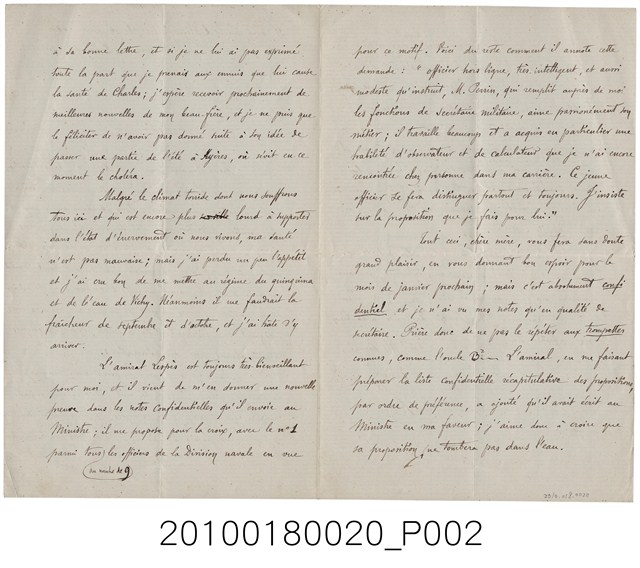 à sa bonne lettre, et si je ne lui ai pas exprimé
toute la part que je prenais aux ennuis que lui cause
la santé de Charles ; j'espère recevoir prochainement de
meilleures nouvelles de mon beau-frère, et je ne puis que
le féliciter de n'avoir pas donné suite à son idée de
passer une partie de l'été à Hyères, où sévit en ce
moment le choléra.
Malgré le climat torride dont nous souffrons
tous ici et qui est encore plus lourd à supporter
dans l'état d'énervement où nous vivons, ma santé
n'est pas mauvaise ; mais j'ai perdu un peu l'appétit
et j'ai cru bon de me mettre au régime du quinquina
et de l'eau de Vichy. Néanmoins il me faudrait la
fraîcheur de septembre et d'octobre, et j'ai hâte d'y
arriver.
L'amiral Lespès est toujours très bienveillant
pour moi, et il vient de m'en donner une nouvelle
preuve dans les notes confidentielles qu'il envoie au
Ministre ; il me propose pour la croix, avec le n° 1
parmi tous les officiers de la Division navale en vue
au nombre de 9
pour ce motif. Voici du reste comment il annote cette
demande : " officier hors ligne, très intelligent, et aussi
modeste qu'instruit, M. Perrin, qui remplit auprès de moi
les fonctions de secrétaire militaire, aime passionnément son
métier ; il travaille beaucoup et a acquis en particulier une
habileté d'observateur et de calculateur que je n'ai encore
rencontrée chez personne dans ma carrière. Ce jeune
officier se fera distinguer partout et toujours. J'insiste
sur la proposition que je fais pour lui."
Tout ceci, chère mère, vous fera sans doute
grand plaisir, en vous donnant bon espoir pour le
mois de janvier prochain ; mais c'est absolument confi
dentiel et je n'ai vu mes notes qu'en qualité de
secrétaire. Prière donc de ne pas le répéter aux trompettes
connues, comme l'oncle B— L'amiral, en me faisant
préparer la liste confidentielle récapitulative des propositions,
par ordre de préférence, a ajouté qu'il avait écrit au
Ministre en ma faveur ; j'aime donc à croire que
sa proposition ne tombera pas dans l'eau.
20100180020_P002